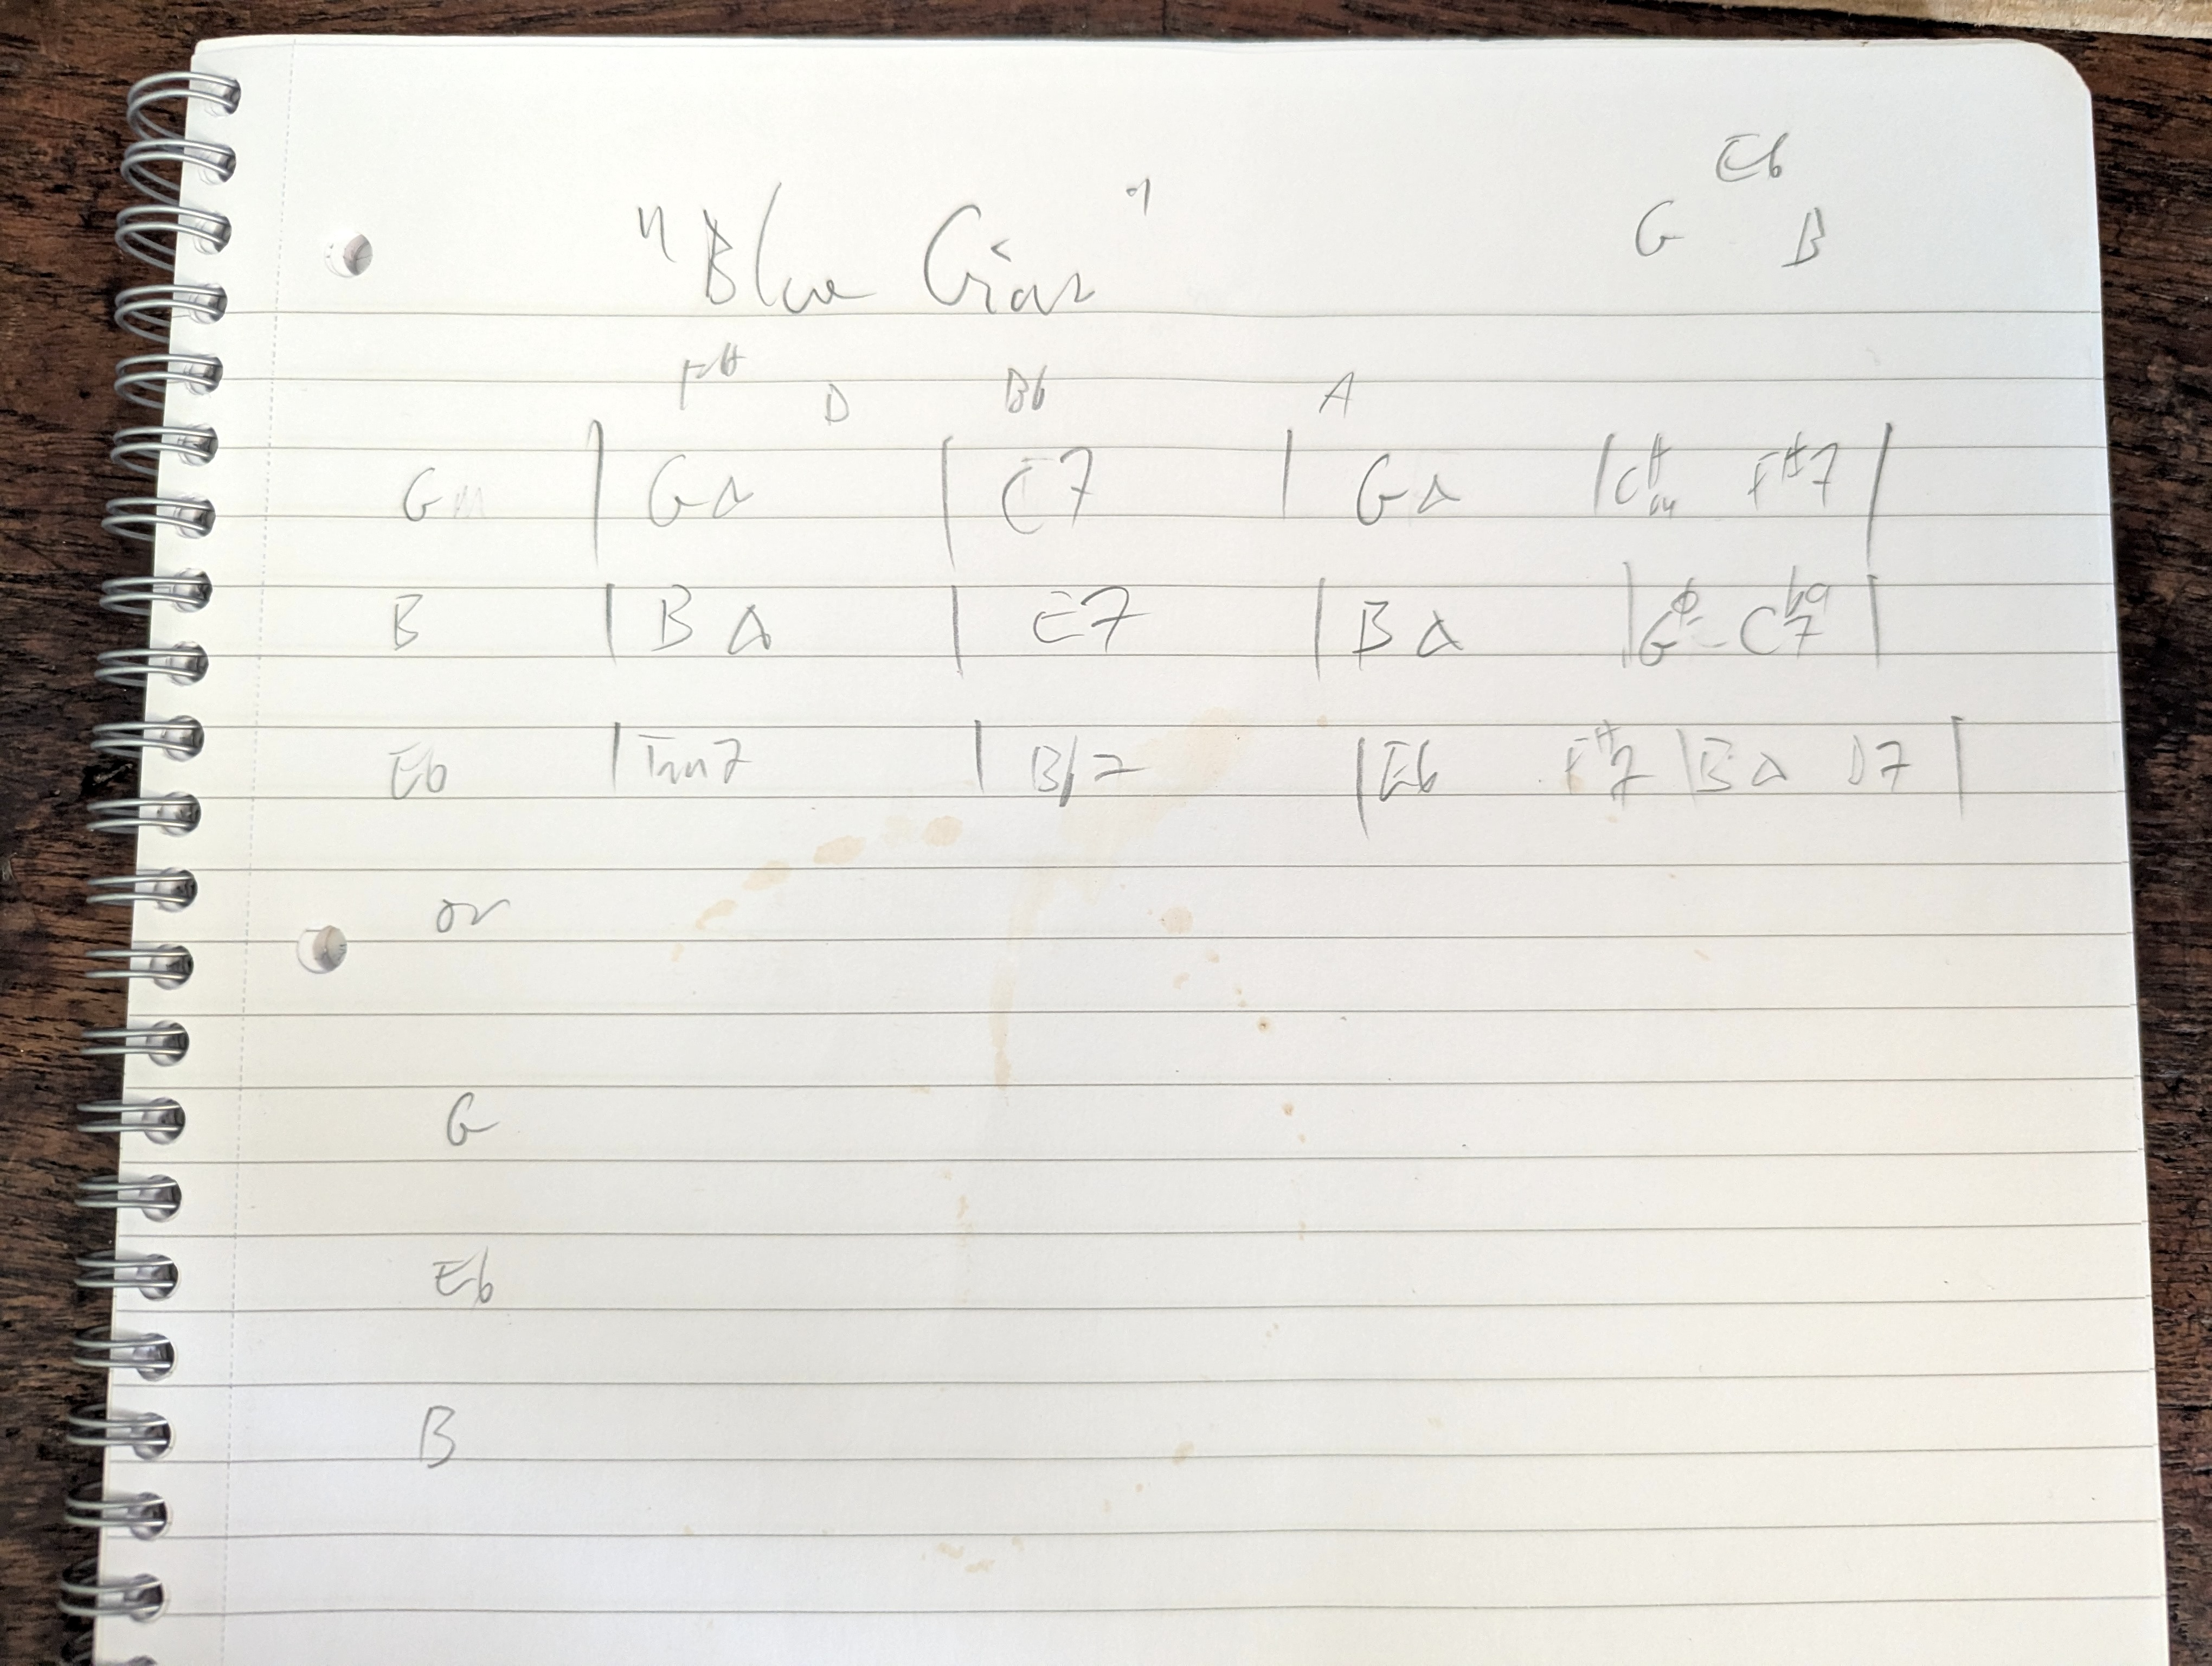 Eb
"Blue Gian"
G B
F# D Bb A
Gm | G∆ | C7 | G∆ | C#m F#7 |
B | B∆ | E7 | B∆ | Gø C7b9 |
Eb | Fm7 | Bb7 | Eb F#7 | B∆ D7 |
or
G
Eb
B